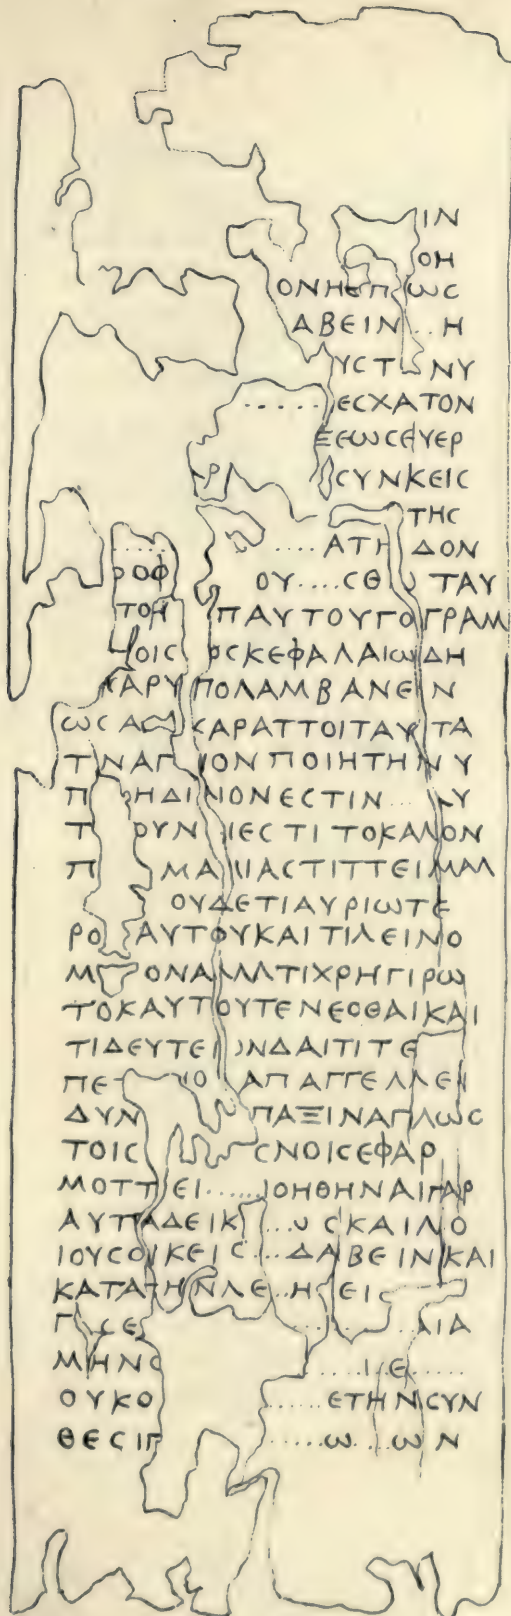 ΙΝ
ΟΗ
ΟΝΗΕΠΩϹ
ΑΒΕΙΝ..Η
ΥϹΤ ΝΥ
.....ΕϹΧΑΤΟΝ
ΞΕΩϹΕΥΕΡ
ΡΑ ϹΥΝΚΕΙϹ
ΤΗϹ
.... ....ΑΤΗ ΔΟΝ
ΡΟΦ ΟΥ....ϹΘ ΤΑΥ
ΤΟΗ ΠΑΥΤΟΥΓΟΓΡΑΜ
ΟΙϹ ΟϹΚΕΦΑΛΑΙΩΔΗ
ΚΑΡΥΠΟΛΑΜΒΑΝΕΙΝ
ΩϹΑ ΧΑΡΑΤΤΟΙΤΑΥΤΑ
ΤΙΝΑΓ ΙΟΝΠΟΙΗΤΗΝΥ
Π ΗΔΙ ΝΙΟΝΕϹΤΙΝ...Υ
Τ ΟΥΝ ΙΕϹΤΙΤΟΚΑΛΟΝ
Π ΜΑ ΙΑϹΤΙΤΤΕΙΜΑΛ
ΟΥΔΕΤΙΑΥΡΙΩΤΕ
ΡΟ ΑΥΤΟΥΚΑΙΤΙΛΕΙΝΟ
Μ ΟΝΑΛΛΑΤΙΧΡΗΓΙΡΩ
ΤΟΚΑΥΤΟΥΤΕΝΕΟΘΑΙΚΑΙ
ΤΙΔΕΥΤΕΙ ΟΝΔΑΙΤΙΤΕ
ΠΕ ΙΟ ΑΠΑΓΓΕΛΛΕΙ
ΔΥΝ ΠΑΞΙΝΑΠΛΩϹ
ΤΟΙϹ ϹΝΟΙϹΕΦΑΡ
ΜΟΤΤ ΕΙ.....ΙΟΗΘΗΝΑΙΓΑΡ
ΑΥΤΑΔΕΙΚ ...ΥϹΚΑΙΛΟ
ΙΟΥϹΟΙΚΕΙϹ...ΔΑΒΕΙΝΚΑΙ
ΚΑΤΑΤΗΝΛΕ..Η ΕΙϹ
Γ ϹΕ ΛΙΑ
ΜΗΝΟ ...ΙΕ.....
ΟΥΚΟ ......ΕΤΗΝϹΥΝ
ΘΕϹΙΓ .....Ω..ΩΝ